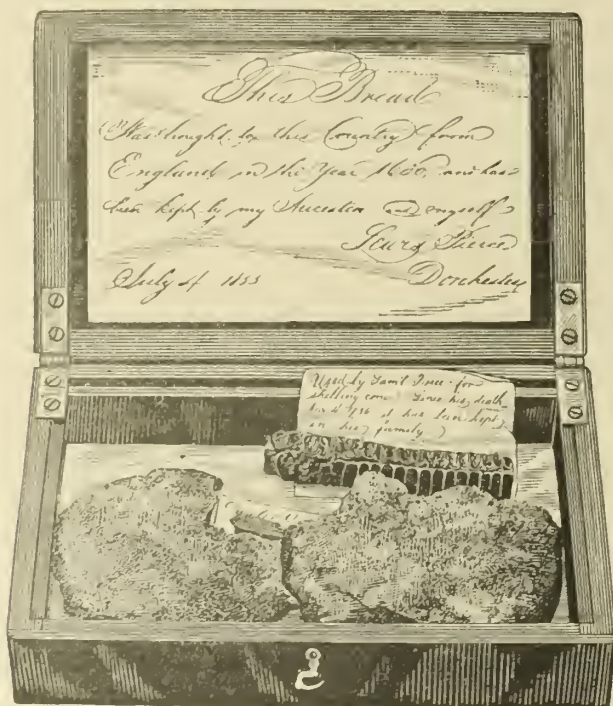 This Bread
Was brought to this Country from
England in the Year 1630, and has
been kept by my Ancestors and myself
Lewis Pierce
July 4 1855 Dorchester
Used by Sam'l Pierce for
shelling corn. Since his death
it has been kept
in his family